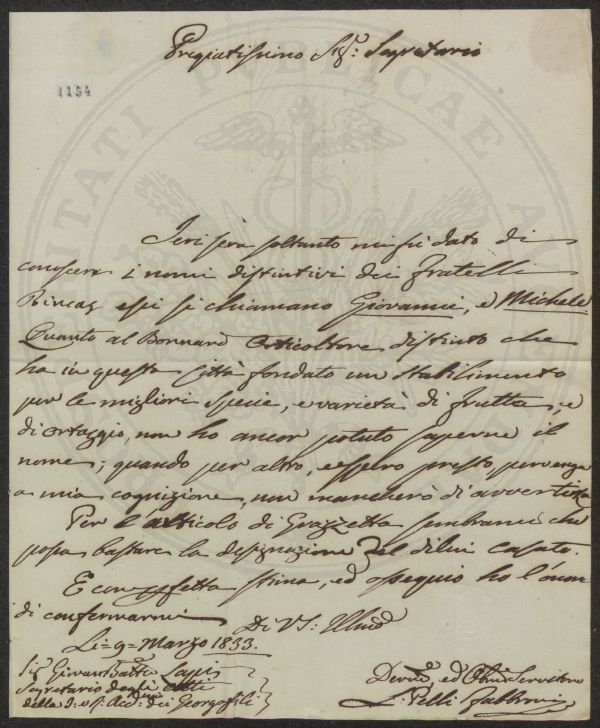 Pregiatissimo Sig.r: Segretario
1154
Ieri sera soltanto mi fù dato di
conoscere i nomi distintivi dei fratelli
essi si chiamano Giovanni, e Michele.
Quanto al Bonnard Orticoltore distinto che
ha in questa Città fondato un Stabilimento
per le migliori specie, e varietà di frutta, e
di ortaggio, non ho ancor potuto saperne il
nome; quando per altro, e spero presto, pervenga
a mia cognizione, non mancherò di avvertirla
Per l'articolo di Gazzetta sembrami che
possa bastare la designazione del di lui casato.
E con perfetta stima, ed ossequio ho l'onore
di confermarmi
Di VS: Illma
Li = 9 = Marzo 1833.
Sig.r Giovan Batta Lapi
Segretario degli Atti
della I: e R: Accad.a dei Georgofili
Devmo ed Obbmo Servitore
L. Pelli Fabbroni